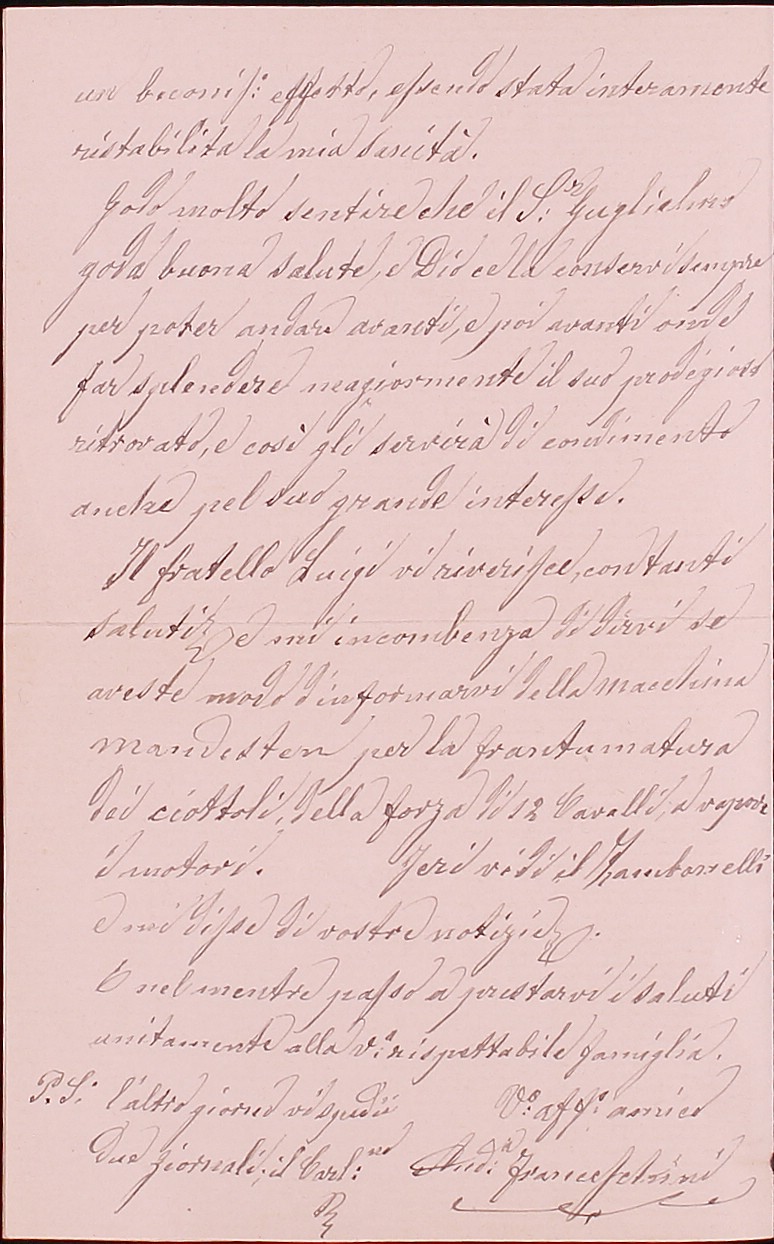 un buonis.o effetto, essendo stata interamente
ristabilita la mia sanità.
Godo molto sentire che il S.r Guglielmo
goda buona salute, e Dio ce la conservi sempre
per poter andare avanti, e poi avanti onde
far splendere magiormente il suo prodigioso
ritrovato, e così gli servirà di condimento
anche pel suo grande interesse.
Il fratello Luigi vi riverisce, con tanti
saluti e mi incombenza di dirvi se
aveste modo d'informarvi della macchina
mandesten per la frantumatura
dei ciottoli, della forza di 12 Cavalli, a vapore
i motori. Jeri vidi il Zambonelli
e mi disse di vostre notizie.
E nel mentre passo a prestarvi i saluti
unitamente alla V.a rispettabile famiglia.
P.S. l'altro giorno vi spedii V.o aff.o amico
due giornali, il Carl.no And.a Franceschini